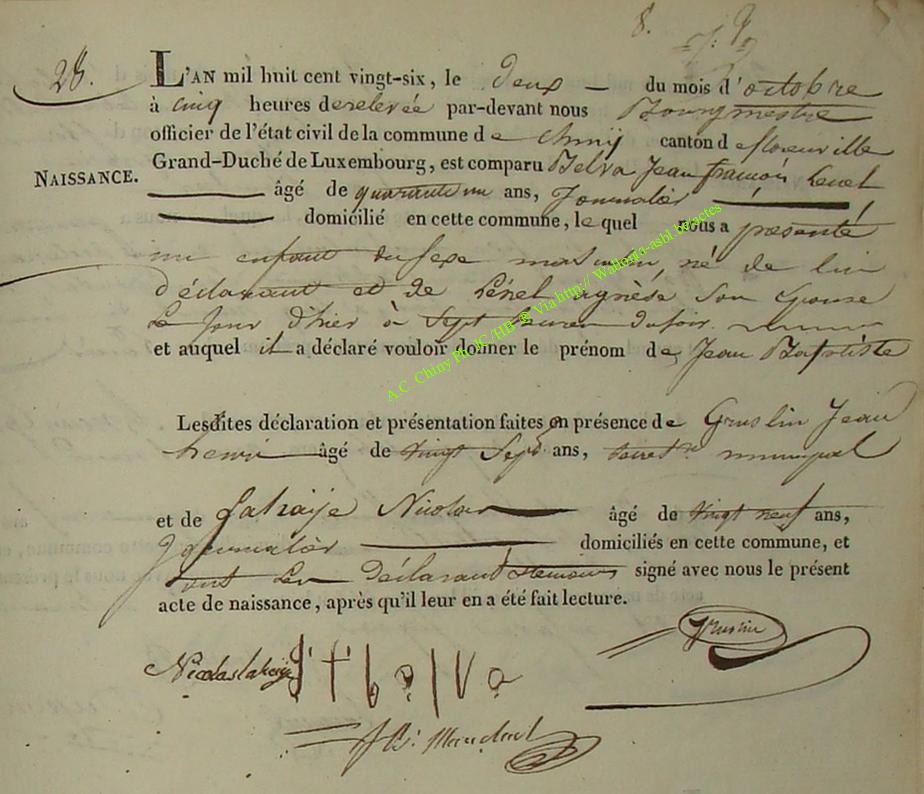 8.
28.
L'AN mil huit cent vingt-six, le Deux du mois d'octobre
à cinq heures de relevée par-devant nous Bourgmestre
officier de l'état civil de la commune de Chiny canton de florenville
NAISSANCE. Grand-Duché de Luxembourg, est comparu Belva Jean françois
âgé de quarante un ans, Journalier
domicilié en cette commune, lequel nous a présenté
un enfant du sexe masculin, né de lui
déclarant et de agnèse son Epouse
Le Jour d'hier à Sept heures du soir
et auquel il a déclaré vouloir donner le prénom de Jean Baptiste
Lesdites déclaration et présentation faites en présence de Gruslin Jean
henri âgé de vingt Sept ans, municipal
et de Lahaÿe Nicolas âgé de vingt neuf ans,
Journalier domiciliés en cette commune, et
ont Les Déclarant et temoins signé avec nous le présent
acte de naissance, après qu'il leur en a été fait lecture.
Gruslin
Nicolas lahaije
A.C. Chiny Ph JC /HB ® Via http:// Wallonia-asbl be/actes